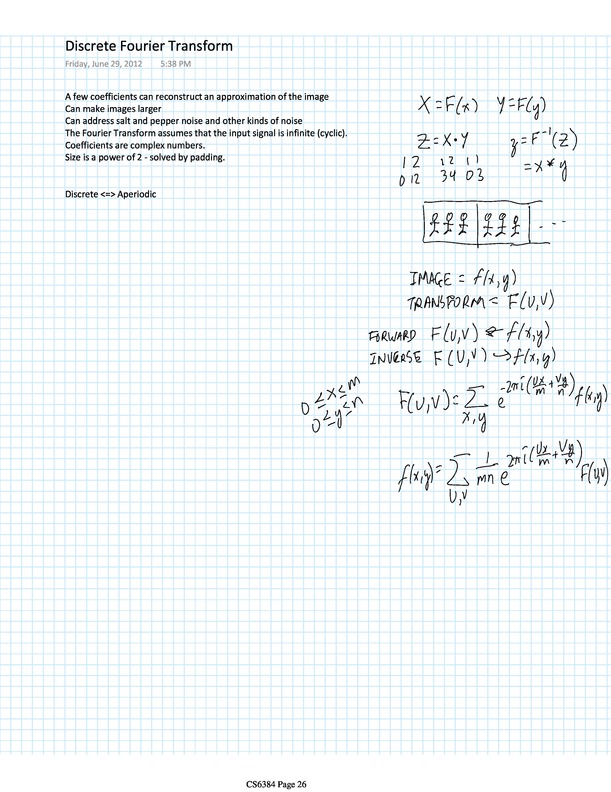 Discrete Fourier Transform
Friday, June 29, 2012 5:38 PM
A few coefficients can reconstruct an approximation of the image
Can make images larger
Can address salt and pepper noise and other kinds of noise
The Fourier Transform assumes that the input signal is infinite (cyclic).
Coefficients are complex numbers.
Size is a power of 2 - solved by padding.
Discrete <=> Aperiodic
X = F(x) Y = F(y)
Z = X · Y z = F⁻¹(Z)
1 2 1 2 1 1 = x * y
0 12 3 4 0 3
...
IMAGE = f(x,y)
TRANSFORM = F(U,V)
FORWARD F(U,V) ← f(x,y)
INVERSE F(U,V) → f(x,y)
0 ≤ x ≤ m
0 ≤ y ≤ n
F(U,V) = Σ_{x,y} e^{-2πi(Ux/m + Vy/n)} f(x,y)
f(x,y) = Σ_{U,V} 1/mn e^{2πi(Ux/m + Vy/n)} F(U,V)
CS6384 Page 26